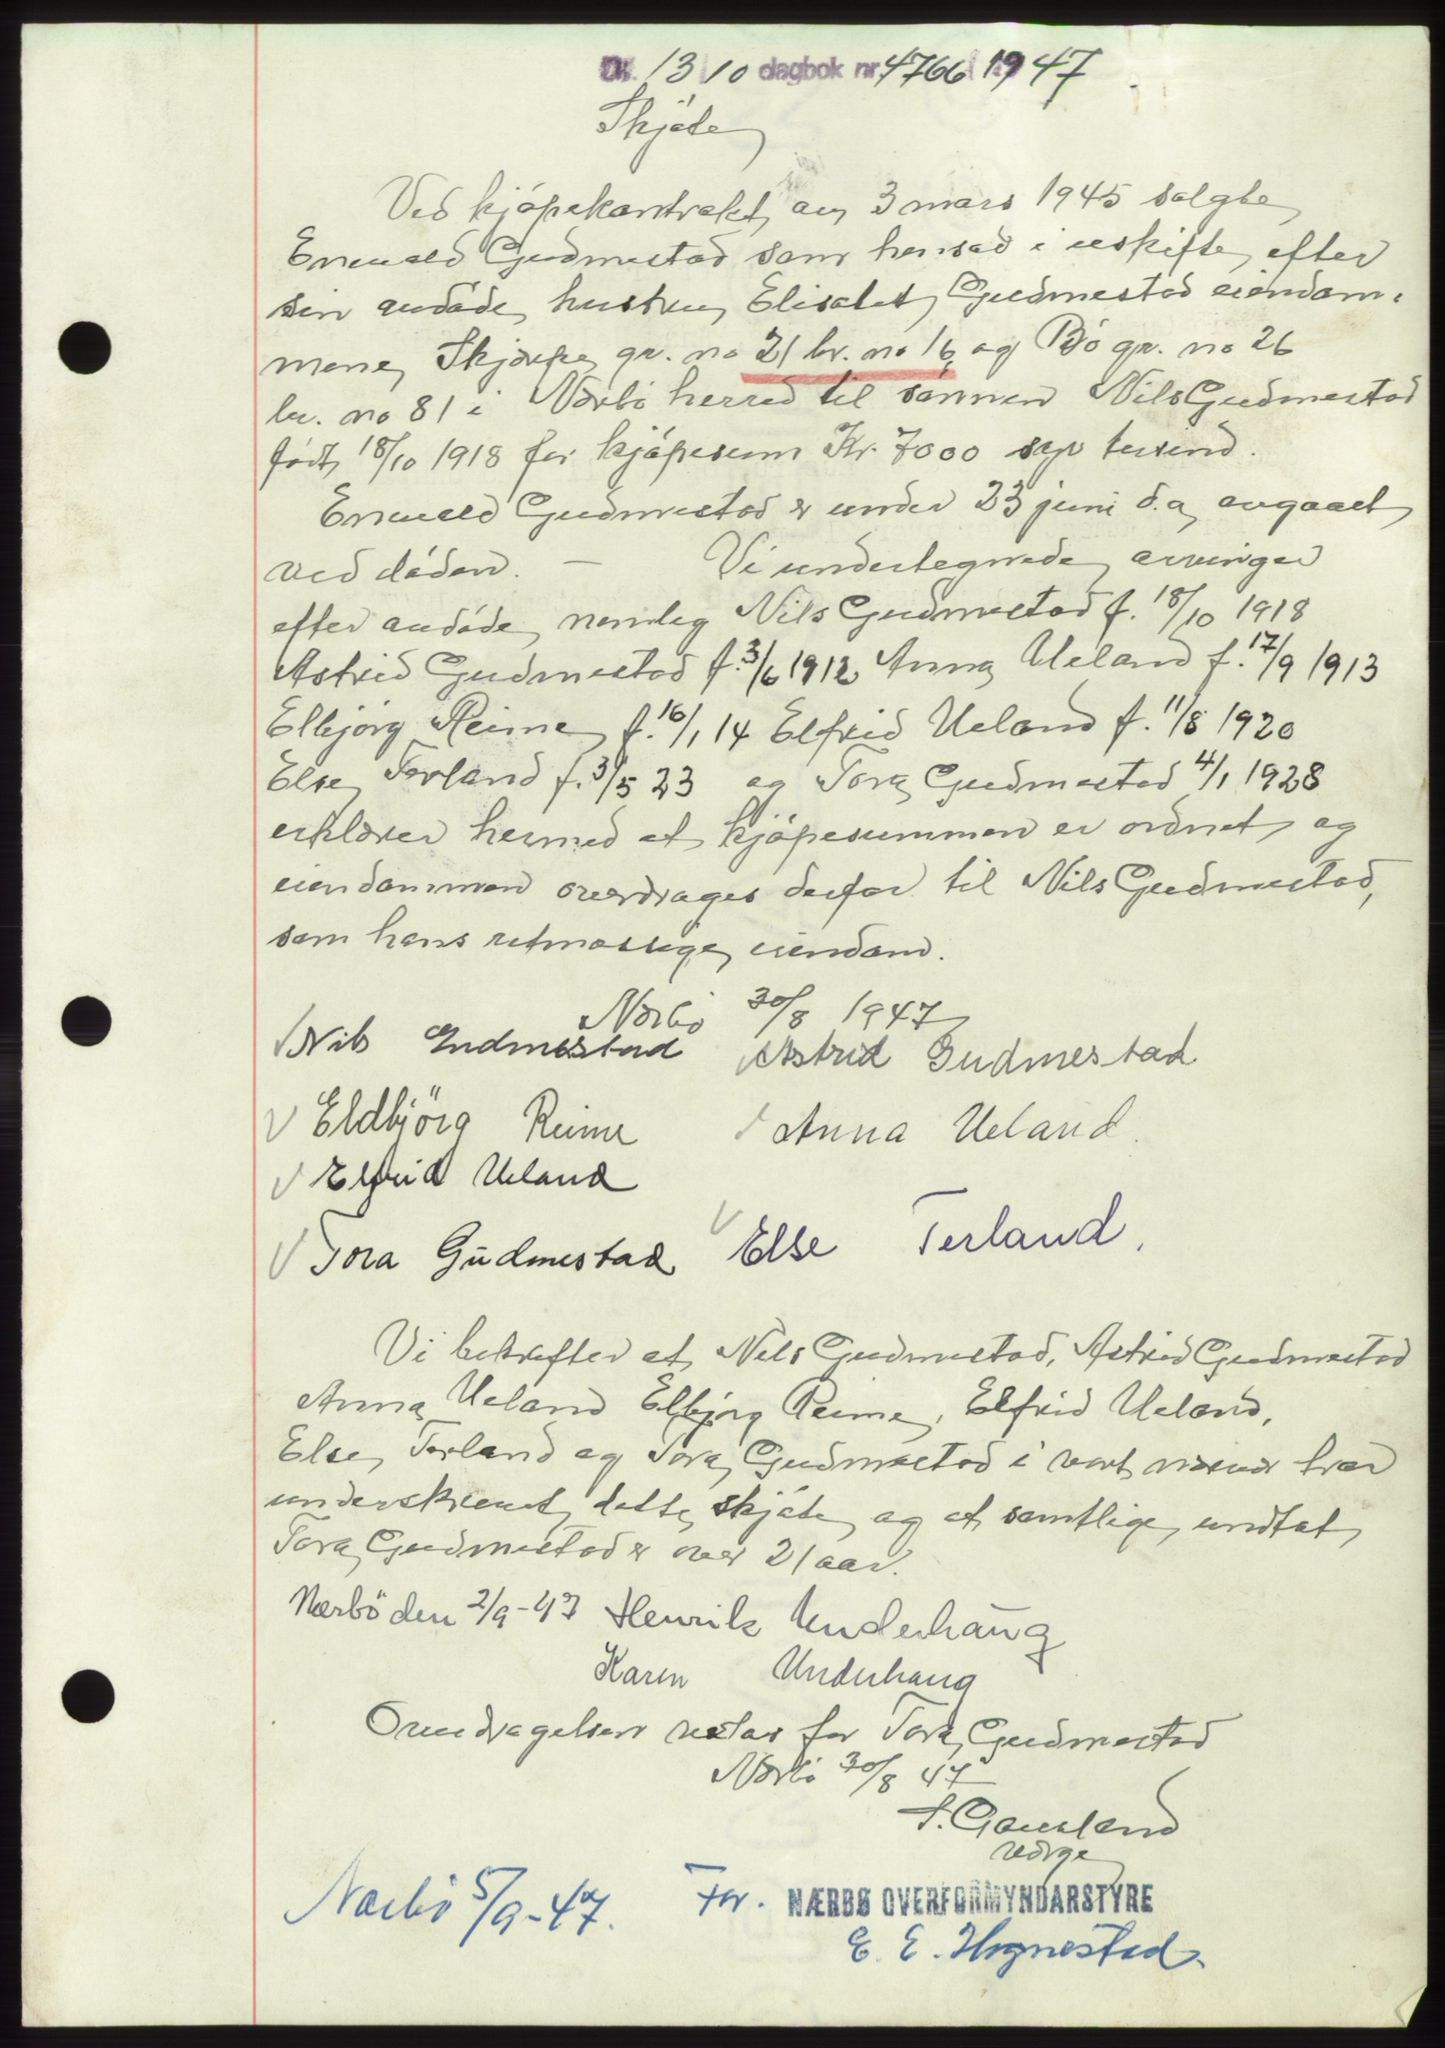 Dk. 13/10 dagbok nr. 4766 1947
Skjøte
Ved kjøpekontrakt av 3 mars 1945 solgte
Enevald Gudmestad som hensad i uskifte efter
sin avdøde hustru Elisabet Gudmestad eiendom-
mene Skjærpe gr. no 21 br. no 16 og Bø gr. no 26
br. no 81 i Nærbø herred til sønnen Nils Gudmestad
født 18/10 1918 for kjøpesum Kr. 7000 syv tusind.
Enevald Gudmestad er under 23 juni d.a. avgaaet
ved døden. — Vi undertegnede arvinger
efter avdøde, nemlig Nils Gudmestad f. 18/10 1918
Astrid Gudmestad f. 3/6 1912 Anna Ueland f. 17/9 1913
Elbjørg Reime f. 16/1 14 Elfrid Ueland f. 11/8 1920
Else Terland f. 3/5 23 og Tora Gudmestad 4/1 1928
erklærer hermed at kjøpesummen er ordnet og
eiendommen overdrages derfor til Nils Gudmestad,
som hans retmæssige eiendom.
Nærbø 30/8 1947
Nils Gudmestad Astrid Gudmestad
Eldbjörg Reime Anna Ueland.
Elfrid Ueland
Tora Gudmestad Else Terland.
Vi bekrefter at Nils Gudmestad, Astrid Gudmestad
Anna Ueland Elbjørg Reime, Elfrid Ueland,
Else Terland og Tora Gudmestad i vort nærvær har
underskrevet dette skjøte og at samtlige undtat
Tora Gudmestad er over 21 aar.
Nærbö den 2/9-47 Henrik Underhaug
Karen Underhaug
Overdragelsen vedtas for Tora Gudmestad
Nærbø 30/8 47
S. Gausland
verge
Nærbø 5/9-47. For. NÆRBØ OVERFORMYNDARSTYRE
E. E. Hognestad